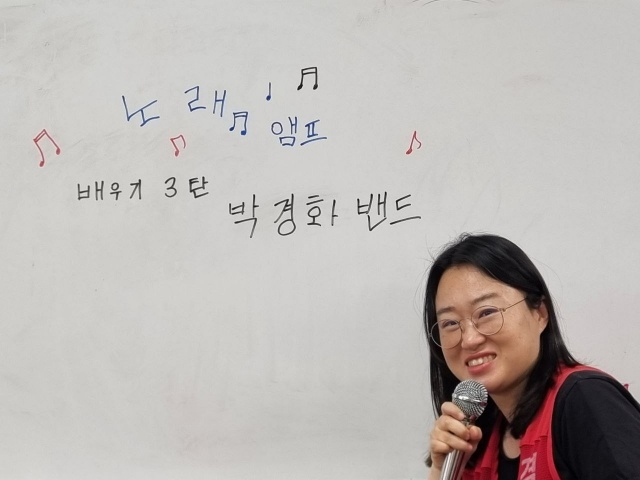 노래
앰프
배우기 3탄
박경화 밴드